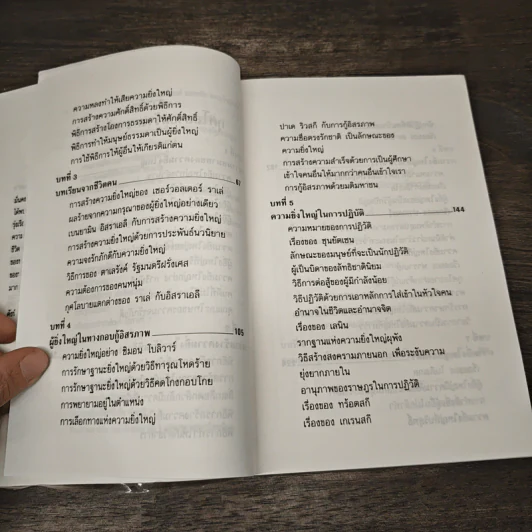 ความหลงทำให้เสียความยิ่งใหญ่
การสร้างความศักดิ์สิทธิ์ด้วยพิธีการ
พิธีการสร้างโองการธรรมดาให้ศักดิ์สิทธิ์
พิธีการทำให้มนุษย์ธรรมดาเป็นผู้ยิ่งใหญ่
การใช้พิธีการให้ผู้อื่นให้เกียรติแก่ตน
บทที่ 3
บทเรียนจากชีวิตตน 67
การสร้างความยิ่งใหญ่ของ เซอร์วอลเตอร์ ราเล่
ผลร้ายจากความกรุณาของผู้ยิ่งใหญ่อย่างเดียว
เบนยามิน อิสราเอลี กับการสร้างความยิ่งใหญ่
การสร้างความยิ่งใหญ่ด้วยการประพันธ์นวนิยาย
ความจงรักภักดีกับความยิ่งใหญ่
วิธีการของ ตาเลรังค์ รัฐมนตรีฝรั่งเศส
ความต้องการของคนหนุ่ม
กุศโลบายแตกต่างของ ราเล่ กับอิสราเอลี
บทที่ 4
ผู้ยิ่งใหญ่ในทางกอบกู้อิสรภาพ 105
ความยิ่งใหญ่อย่าง ซิมอน โบลิวาร์
การรักษาฐานะยิ่งใหญ่ด้วยวิธีทารุณโหดร้าย
การรักษาฐานะยิ่งใหญ่ด้วยวิธีคดโกงกอบโกย
การพยายามอยู่ในตำแหน่ง
การเลือกทางแห่งความยิ่งใหญ่
ปาเด ริวสกี กับการกู้อิสรภาพ
ความซื่อตรงรักชาติ เป็นลักษณะของ
ความยิ่งใหญ่
การสร้างความสำเร็จด้วยการเป็นผู้ศึกษา
เข้าใจคนอื่นให้มากกว่าคนอื่นเข้าใจเรา
การกู้อิสรภาพด้วยมติมหาชน
บทที่ 5
ความยิ่งใหญ่ในการปฏิวัติ 144
ความหมายของการปฏิวัติ
เรื่องของ ซุนยัตเซน
ลักษณะของมนุษย์ที่จะเป็นนักปฏิวัติ
ผู้เป็นบิดาของลัทธิชาตินิยม
วิธีการต่อสู้ของผู้มีกำลังน้อย
วิธีปฏิวัติด้วยการเอาหลักการใส่เข้าในหัวใจคน
อำนาจในชีวิตและอำนาจจิต
เรื่องของ เลนิน
รากฐานแห่งความยิ่งใหญ่ผุพัง
วิธีสร้างสงครามภายนอก เพื่อระงับความ
ยุ่งยากภายใน
อานุภาพของราษฎรในการปฏิวัติ
เรื่องของ ทร้อตสกี
เรื่องของ เกเรนสกี